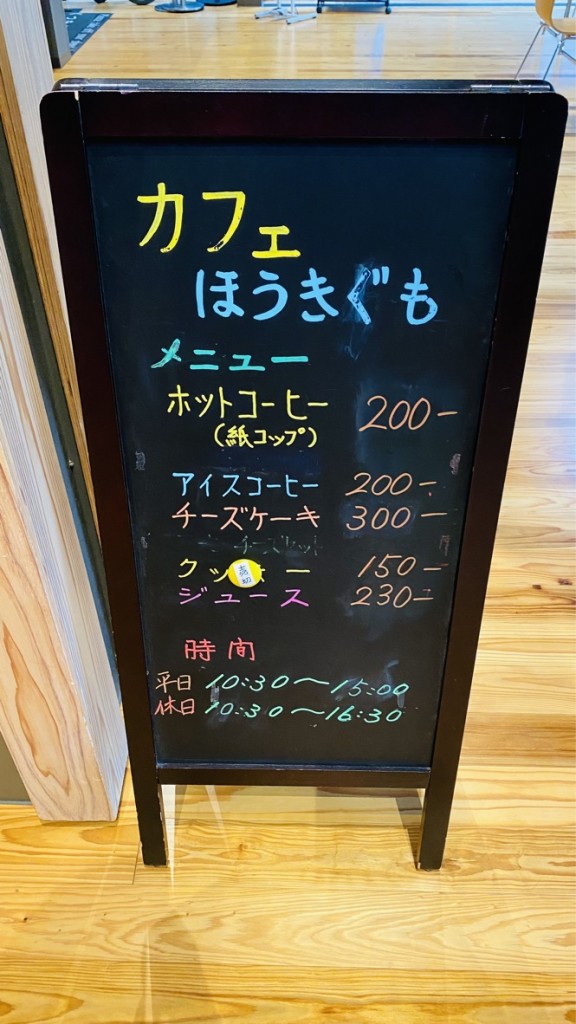 カフェ
ほうきぐも
メニュー
ホットコーヒー 200-
(紙コップ)
アイスコーヒー 200-
チーズケーキ 300-
クッ ー 150-
売切
ジュース 230-
時間
平日 10:30〜15:00
休日 10:30〜16:30